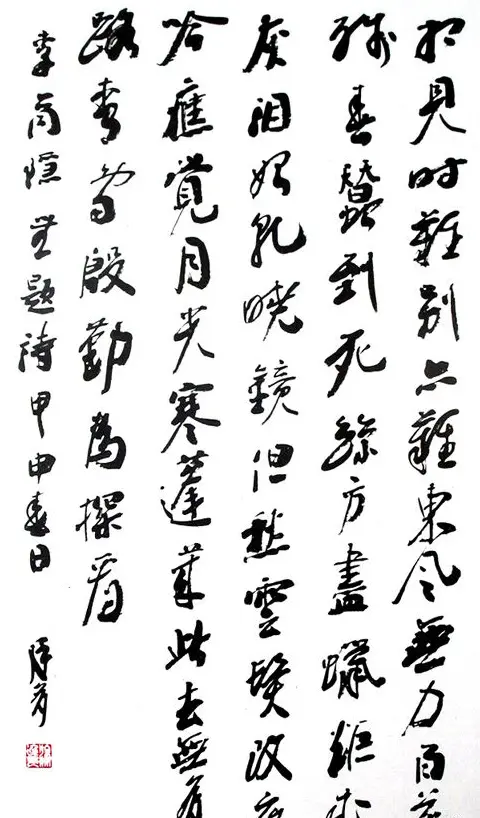 相見时難别亦難東风無力百
残春蠶到死絲方盡蠟炬
灰泪始乾曉鏡但愁雲鬢改
吟應覺月光寒蓬萊此去無
路青鳥殷勤為探看
李商隱無題詩甲申春日